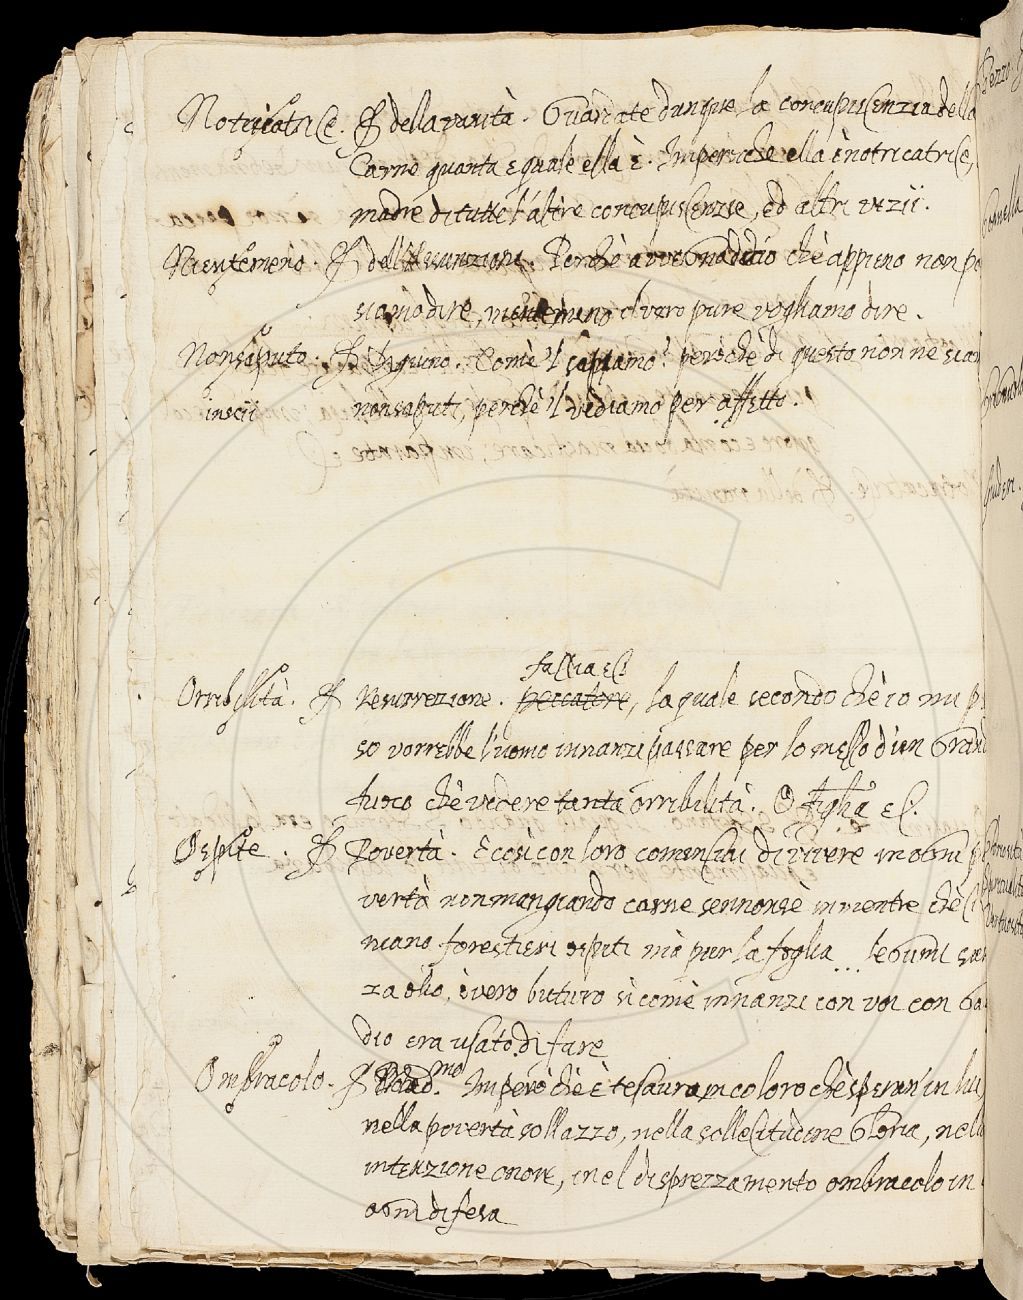 Notricatrice. ℟ della vanità. Guardate dunque la concupiscenzia della
Carne quanta e quale ella è. Imperochè ella è notricatrice,
madre di tutte l'altre concupiscenzie, ed altri vizii.
Nientemeno. ℟ dell' Avvegnadecio chè appieno non po
siamo dire, nientemeno il vero pure vogliamo dire.
Nonsaputo. ℟ Comè 'l sappiamo? perochè di questo non ne sian
inscii nonsaputi, perchè 'l vediamo per affetto.
Orribilità. ℟ Resurrezione. peccatore, la quale secondo chè io mi p
faccia ec.
so vorrebbe l'uomo innanzi passare per lo mezzo d'un Grand
fuoco chè vedere tanta orribilità. O figlia ec.
Ospite. ℟ Povertà. E così con loro cominciai di vivere in ogni p
vertà non mangiando carne sennonsè inmentre chè
niano forestieri ospiti nià pur la foglia ... legumi sen
za olio, overo buturo sì comè innanzi con voi con Ga
dio era usato di fare
Ombracolo. ℟ Imperò chè è tesauro in coloro chè speran' in lui,
nella povertà sollazzo, nella sollecitudine Gloria, nella
intenzione onore, inel disprezzamento ombracolo in
ogni difesa